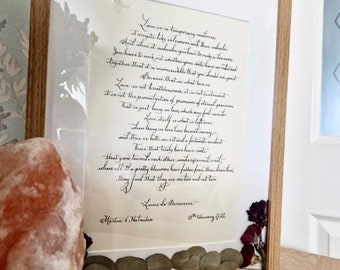 Love is a temporary madness,
it erupts like volcanoes and then subsides.
And when it subsides you have to make a decision.
You have to work out whether your roots have so
together that it is inconceivable that you should ever part.
Because this is what love is.
Love is not breathlessness, it is not excitement,
it is not the promulgation of promises of eternal passion.
That is just being in love, which any fool can do.
Love itself is what is left over,
when being in love has burned away,
and this is both an art and a fortunate accident.
Those that truly love have roots
that grow toward each other underground, and,
when all the pretty blossoms have fallen from their branches,
they find that they are one tree and not two.
Louis de Bernieres
Martin & Natasha
February